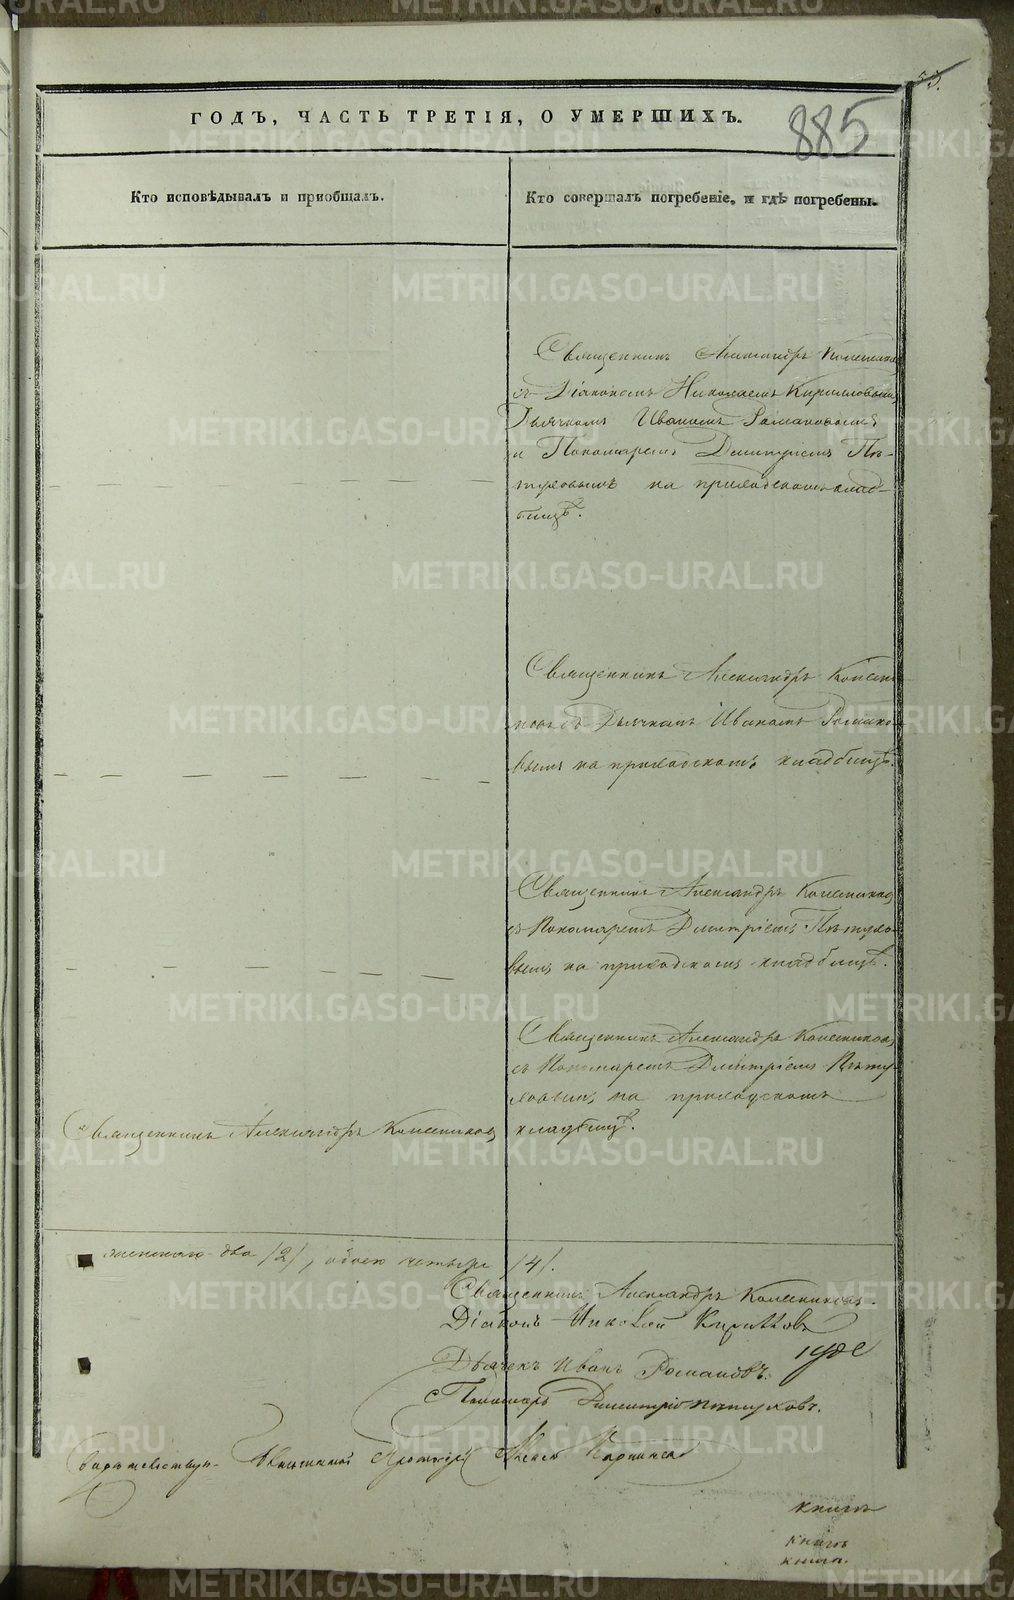 ГОДЪ, ЧАСТЬ ТРЕТІЯ, О УМЕРШИХЪ.
885
Кто исповѣдывалъ и пріобщалъ.
Кто совершалъ погребеніе, и гдѣ погребены.
Священникъ Александръ Колесников
съ Діакономъ Николаемъ Кирилловымъ,
Дьячкомъ Иваномъ Романовымъ
и Пономаремъ Димитріемъ Пѣ-
туховымъ на приходскомъ клад-
бищѣ.
Священникъ Александръ Колесни-
ковъ съ Дьячкомъ Иваномъ Романо-
вымъ на приходскомъ кладбищѣ.
Священникъ Александръ Колесников
съ Пономаремъ Димитріемъ Пѣтухо-
вымъ на приходскомъ кладбищѣ.
Священникъ Александръ Колесников
съ Пономаремъ Димитріемъ Пѣту-
ховымъ на приходскомъ
кладбищѣ.
Священникъ Александръ Колесников
женскаго два /2/, обоего четыре /4/.
Священникъ Александръ Колесников.
Діаконъ Николай Кирилловъ
Дьячекъ Иванъ Романовъ.
Пономарь Димитрій Пѣтуховъ.
Протоіерей
книгъ
книгъ
книга.
METRIKI.GASO-URAL.RU